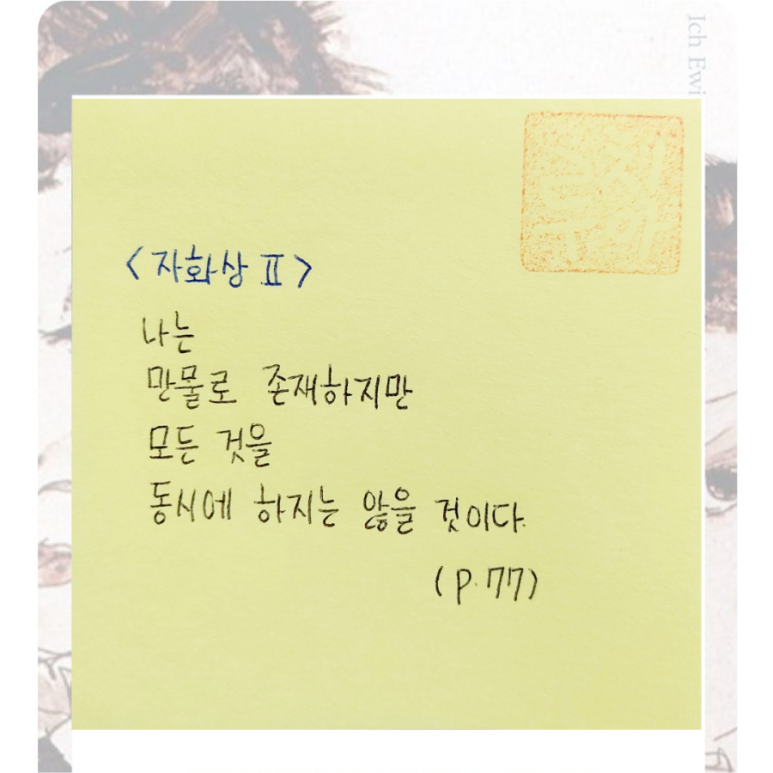 Ich Ewi
<자화상 Ⅱ>
나는
만물로 존재하지만
모든 것을
동시에 하지는 않을 것이다.
(p.77)